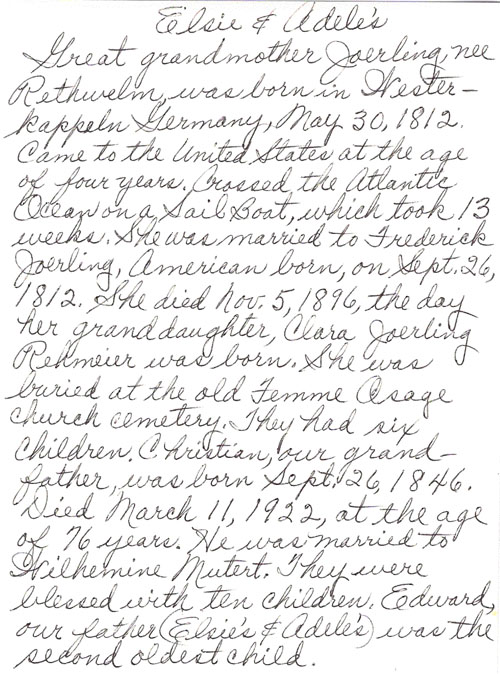 Elsie & Adele's
Great grandmother Joerling, nee
Rethwelm, was born in Wester-
kappeln Germany, May 30, 1812.
Came to the United States at the age
of four years. Crossed the Atlantic
Ocean on a Sail Boat, which took 13
weeks. She was married to Frederick
Joerling, American born, on Sept. 26,
1812. She died Nov. 5, 1896, the day
her granddaughter, Clara Joerling
Rehmeier was born. She was
buried at the old Femme Osage
church cemetery. They had six
children. Christian, our grand-
father, was born Sept. 26, 1846.
Died March 11, 1922, at the age
of 76 years. He was married to
Wilhemine Mutert. They were
blessed with ten children. Edward,
our father (Elsie's & Adele's) was the
second oldest child.